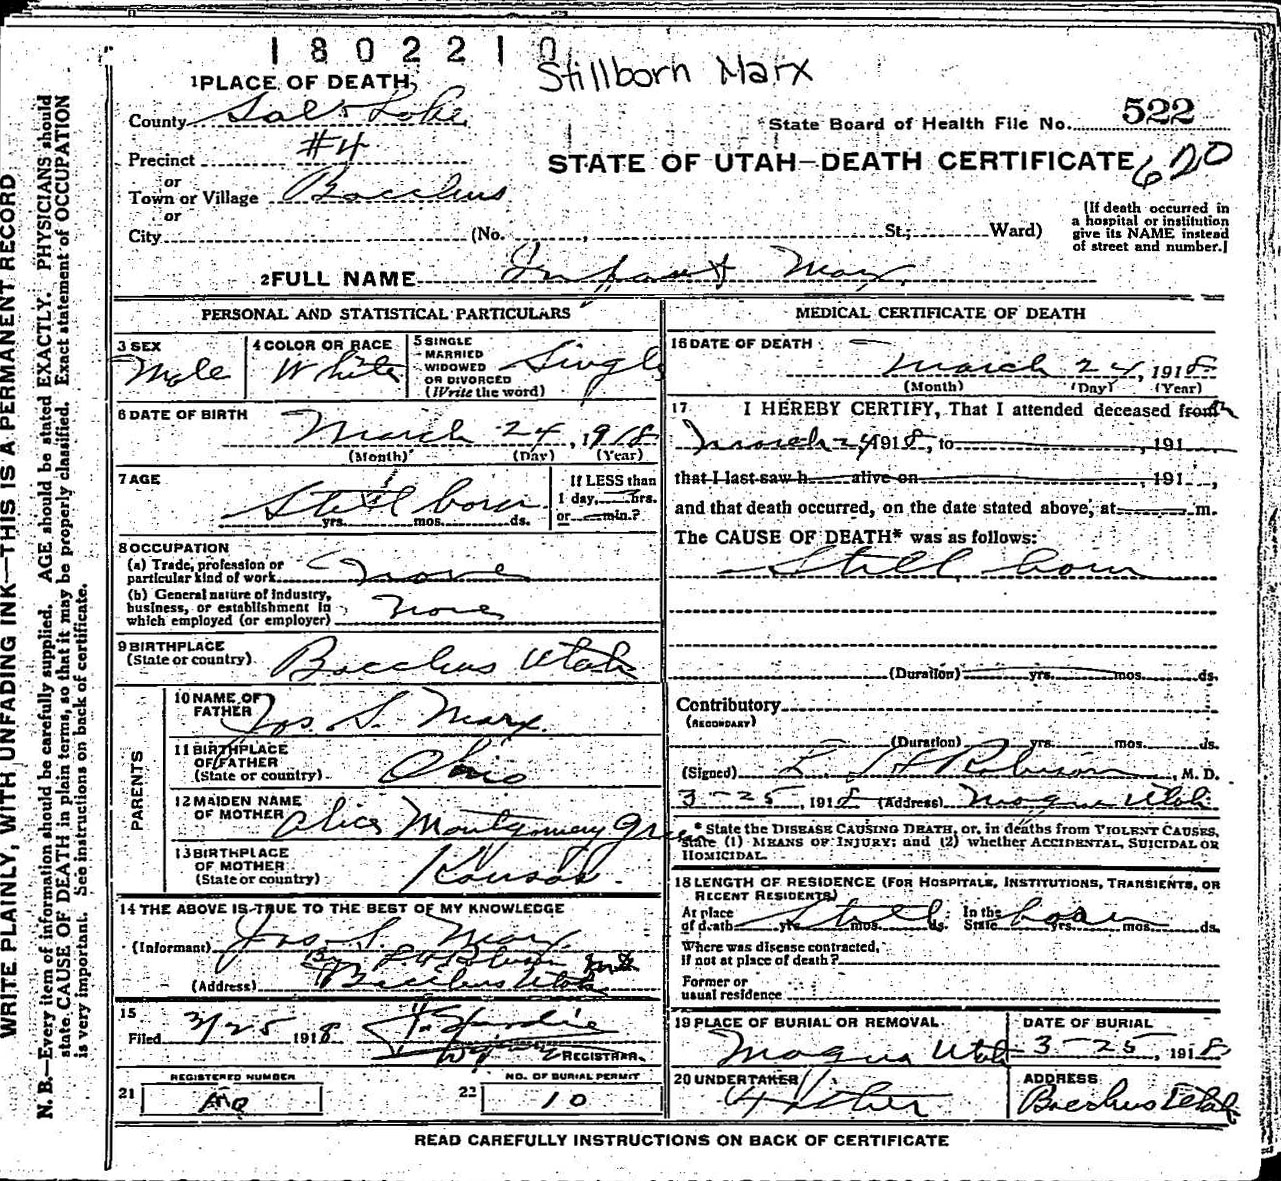 1802210
Stillborn Marx
1 PLACE OF DEATH
County Salt Lake
State Board of Health File No. 522
Precinct #4
STATE OF UTAH—DEATH CERTIFICATE 620
or
Town or Village Bacchus
or
City (No. , St.; Ward)
[If death occurred in
a hospital or institution
give its NAME instead
of street and number.]
2 FULL NAME Infant Marx
PERSONAL AND STATISTICAL PARTICULARS
3 SEX
Male
4 COLOR OR RACE
White
5 SINGLE
MARRIED
WIDOWED
OR DIVORCED
(Write the word)
Single
6 DATE OF BIRTH
March 24, 1918
(Month) (Day) (Year)
7 AGE
Still born
yrs. mos. ds.
If LESS than
1 day, hrs.
or min.?
8 OCCUPATION
(a) Trade, profession or
particular kind of work none
(b) General nature of industry,
business, or establishment in
which employed (or employer) none
9 BIRTHPLACE
(State or country) Bacchus Utah
PARENTS
10 NAME OF
FATHER Jos S. Marx
11 BIRTHPLACE
OF FATHER
(State or country) Ohio
12 MAIDEN NAME
OF MOTHER Alice Montgomery Green
13 BIRTHPLACE
OF MOTHER
(State or country) Kansas
14 THE ABOVE IS TRUE TO THE BEST OF MY KNOWLEDGE
(Informant) Jos S. Marx
By L H Robinson MD
(Address) Bacchus Utah
15
Filed 3/25 1918
REGISTRAR.
REGISTERED NUMBER
21
NO. OF BURIAL PERMIT
22 10
MEDICAL CERTIFICATE OF DEATH
16 DATE OF DEATH
March 24, 1918
(Month) (Day) (Year)
17 I HEREBY CERTIFY, That I attended deceased from
March 24 1918, to , 191
that I last saw h alive on , 191 ,
and that death occurred, on the date stated above, at m.
The CAUSE OF DEATH* was as follows:
Still born
(Duration) yrs. mos. ds.
Contributory
(SECONDARY)
(Duration) yrs. mos. ds.
(Signed) L H Robinson, M. D.
3-25, 1918 (Address) Magna Utah
* State the DISEASE CAUSING DEATH, or, in deaths from VIOLENT CAUSES,
state (1) MEANS OF INJURY; and (2) whether ACCIDENTAL, SUICIDAL OR
HOMICIDAL.
18 LENGTH OF RESIDENCE (FOR HOSPITALS, INSTITUTIONS, TRANSIENTS, OR
RECENT RESIDENTS)
At place
of death yrs. mos. ds. In the
State yrs. mos. ds.
Still born
Where was disease contracted,
if not at place of death?
Former or
usual residence
19 PLACE OF BURIAL OR REMOVAL
Magna Utah
DATE OF BURIAL
3-25, 1918
20 UNDERTAKER
Father
ADDRESS
Bacchus Utah
READ CAREFULLY INSTRUCTIONS ON BACK OF CERTIFICATE
WRITE PLAINLY, WITH UNFADING INK—THIS IS A PERMANENT RECORD
N. B.—Every item of information should be carefully supplied. AGE should be stated EXACTLY. PHYSICIANS should
state CAUSE OF DEATH in plain terms, so that it may be properly classified. Exact statement of OCCUPATION
is very important. See instructions on back of certificate.